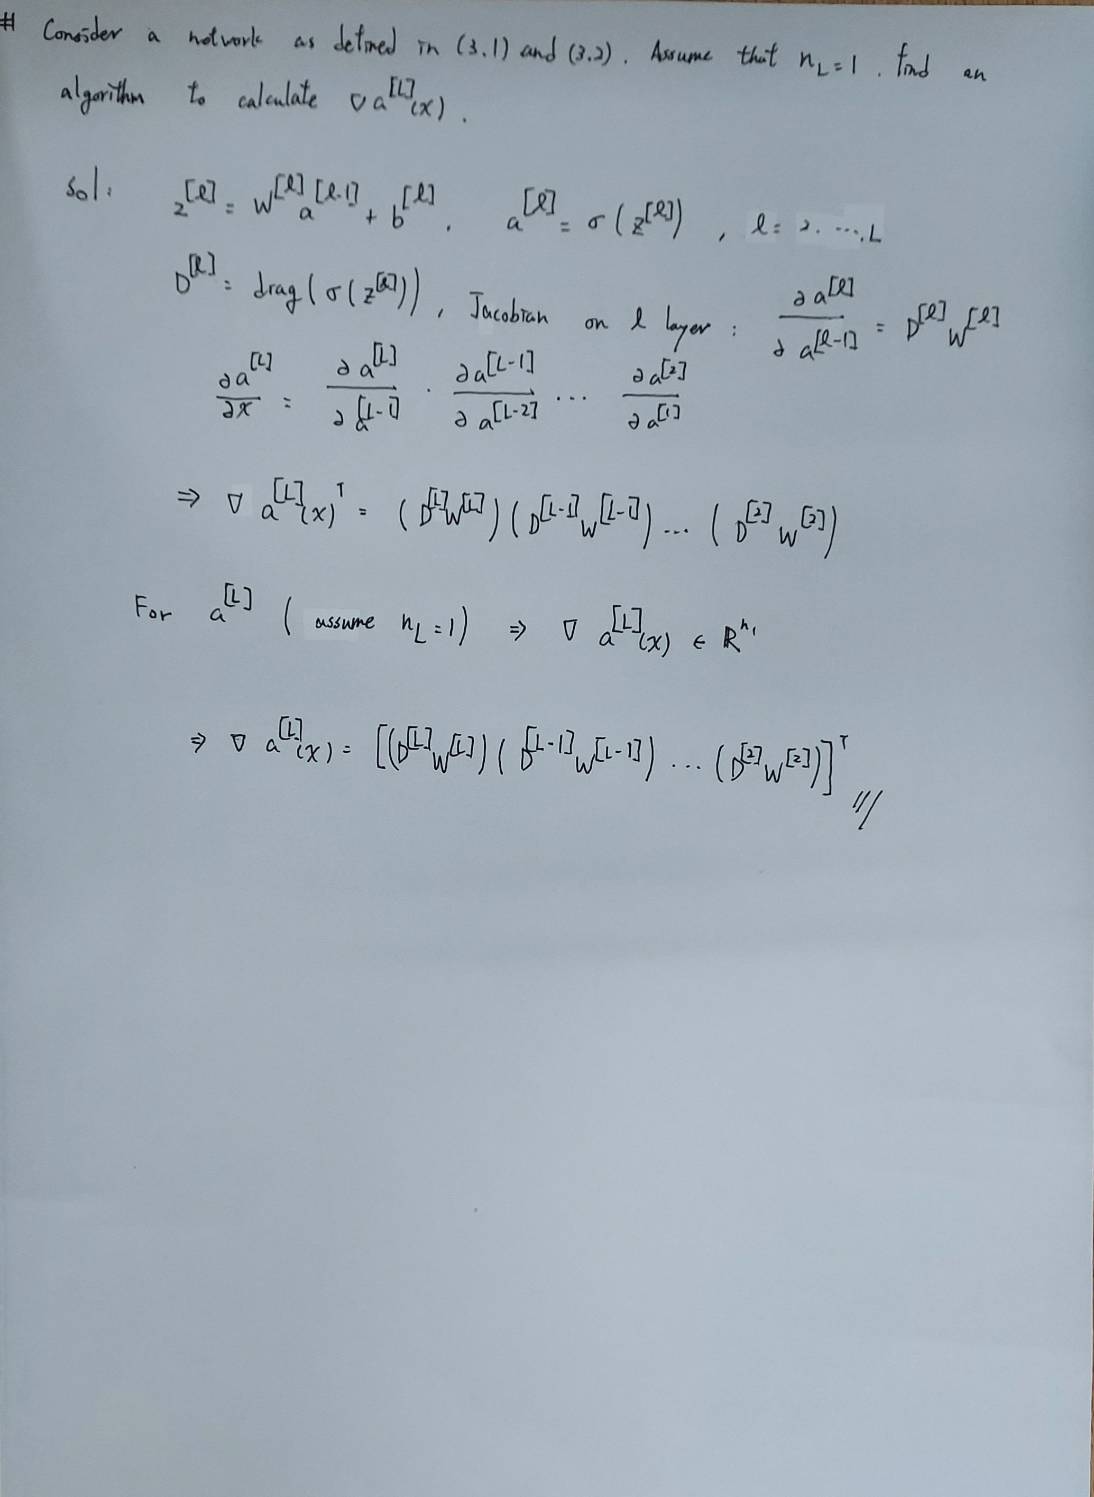 # Consider a network as defined in (3.1) and (3.2). Assume that n_L = 1. find an
algorithm to calculate ∇a^[L](x).
Sol: z^[l] = W^[l] a^[l-1] + b^[l], a^[l] = σ(z^[l]), l = 2, ..., L
D^[l] = diag(σ(z^[l])), Jacobian on l layer: ∂a^[l]/∂a^[l-1] = D^[l] W^[l]
∂a^[L]/∂x = ∂a^[L]/∂a^[L-1] · ∂a^[L-1]/∂a^[L-2] ... ∂a^[2]/∂a^[1]
⇒ ∇a^[L](x)^T = (D^[L] W^[L])(D^[L-1] W^[L-1]) ... (D^[2] W^[2])
For a^[L] (assume n_L = 1) ⇒ ∇a^[L](x) ∈ ℝ^n_1
⇒ ∇a^[L](x) = [(D^[L] W^[L])(D^[L-1] W^[L-1]) ... (D^[2] W^[2])]^T